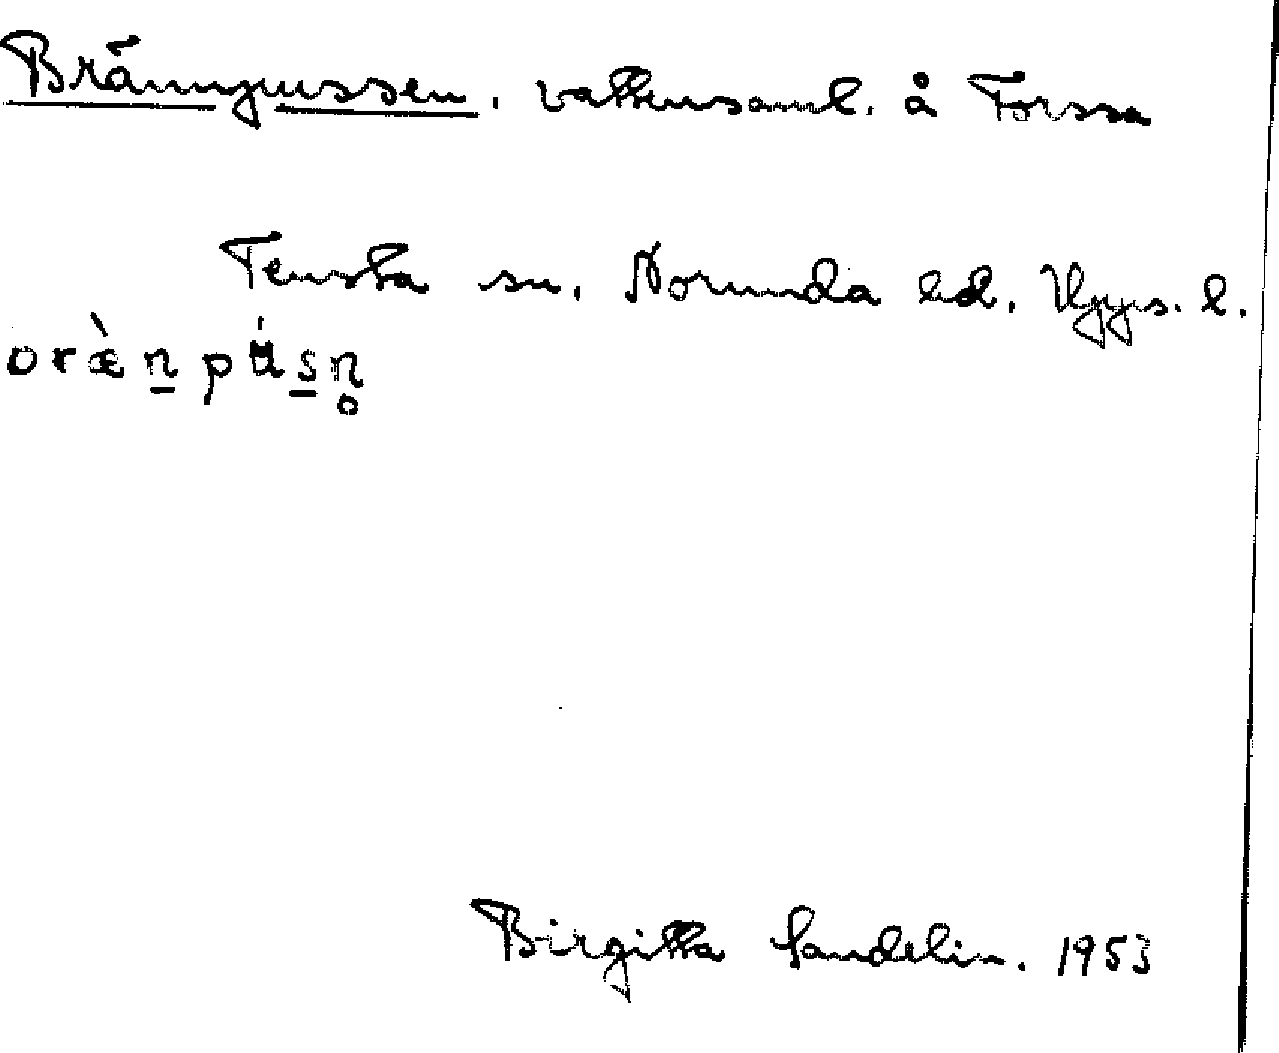 Brännpussen. vattensaml. å Forssa
Tensta sn. Norunda hd. Upps. l.
bræ̀n̲pʉ́s̲n̥
Birgitta Sandelin. 1953